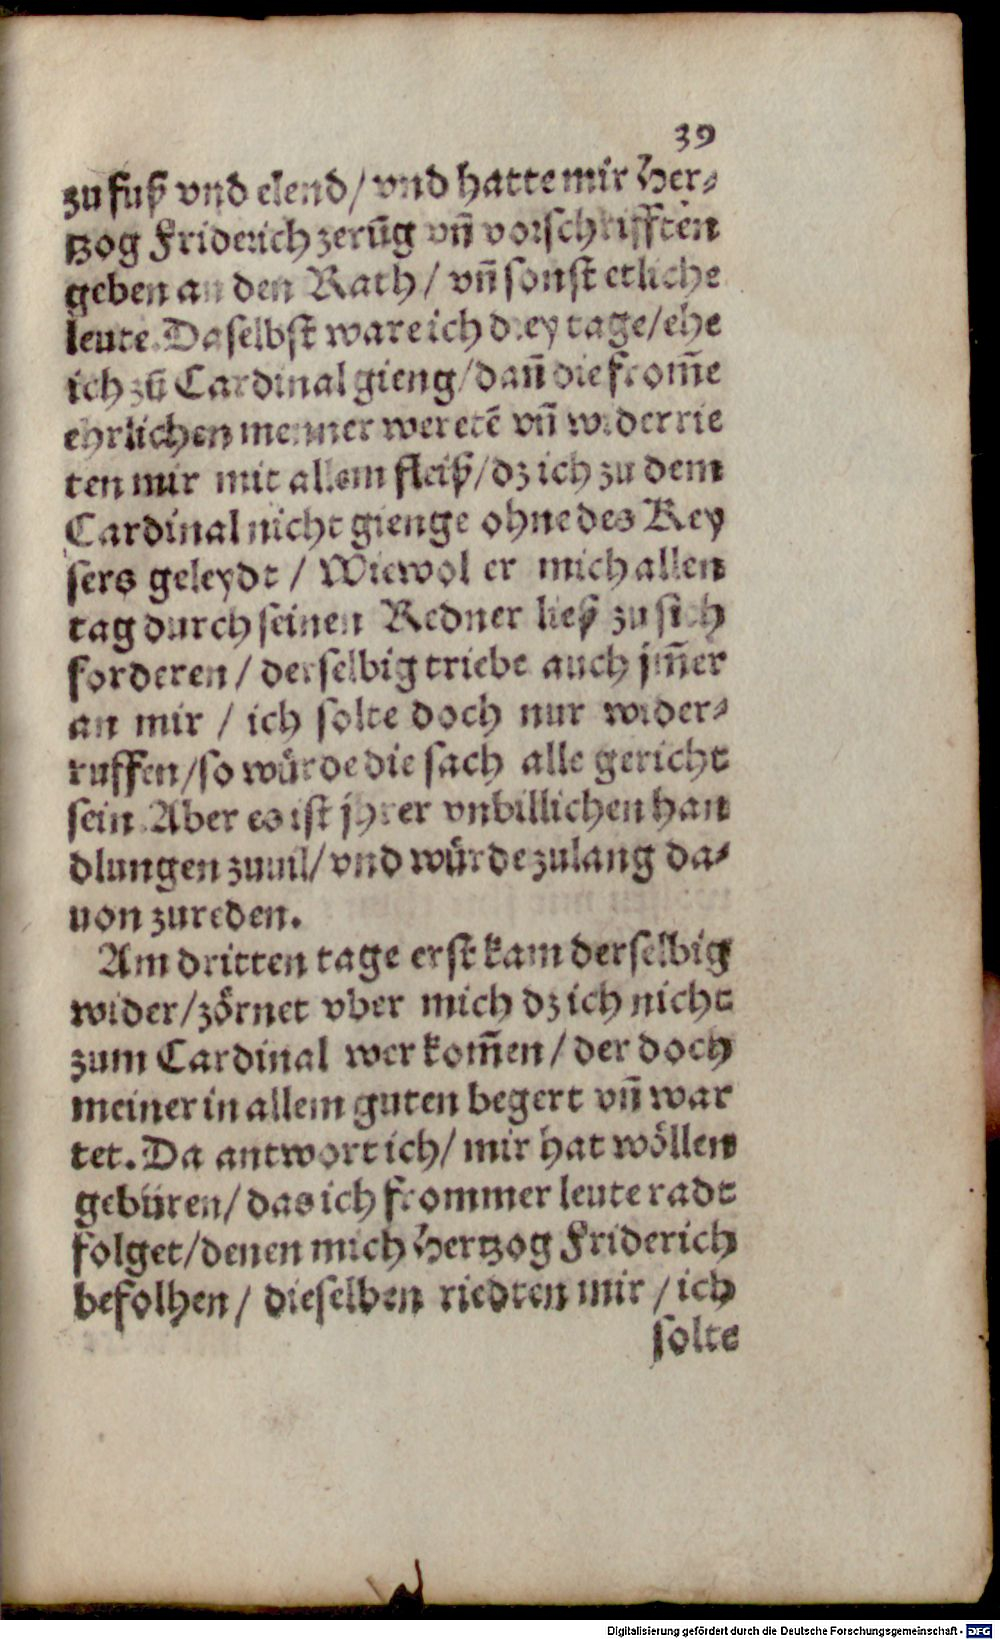 39
zu fuß vnd elend/ vnd hatte mir Her⸗
tzog Friderich zerũg vñ vorschrifften
geben an den Rath/ vñ sonst etliche
leute. Daselbst ware ich drey tage/ ehe
ich zũ Cardinal gieng/ dañ die from̃e
ehrlichen menner weretẽ vñ widerrie
ten mir mit allem fleiß/ dz ich zu dem
Cardinal nicht gienge ohne des Key
sers geleydt/ Wiewol er mich allen
tag durch seinen Redner ließ zu sich
forderen/ derselbig triebe auch jm̃er
an mir/ ich solte doch nur wider⸗
ruffen/ so würde die sach alle gericht
sein. Aber es ist jhrer vnbillichen han
dlungen zuuil/ vnd würde zulang da⸗
uon zureden.
Am dritten tage erst kam derselbig
wider/ zörnet vber mich dz ich nicht
zum Cardinal wer kom̃en/ der doch
meiner in allem guten begert vñ war
tet. Da antwort ich/ mir hat wöllen
gebüren/ das ich frommer leute radt
folget/ denen mich Hertzog Friderich
befolhen/ dieselben riedten mir/ ich
solte
Digitalisierung gefördert durch die Deutsche Forschungsgemeinschaft - DFG